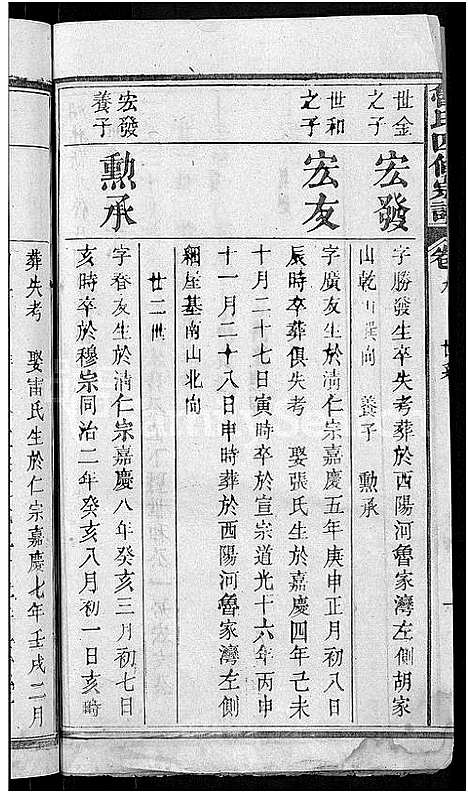 氏四修宗譜
卷
世系
世金
之子
宏發
字勝發生卒失考葬於酉陽河魯家灣左側胡家
山乾山巽向 養子 勳承
世和
之子
宏友
字廣友生於清仁宗嘉慶五年庚申正月初八日
辰時卒葬俱失考 娶張氏生於嘉慶四年己未
十月二十七日寅時卒於宣宗道光十六年丙申
十一月二十八日申時葬於酉陽河魯家灣左側
屋基南山北向
廿二世
宏發
養子
勳承
字春友生於清仁宗嘉慶八年癸亥三月初七日
亥時卒於穆宗同治二年癸亥八月初一日亥時
葬失考 娶雷氏生於仁宗嘉慶七年壬戌二月